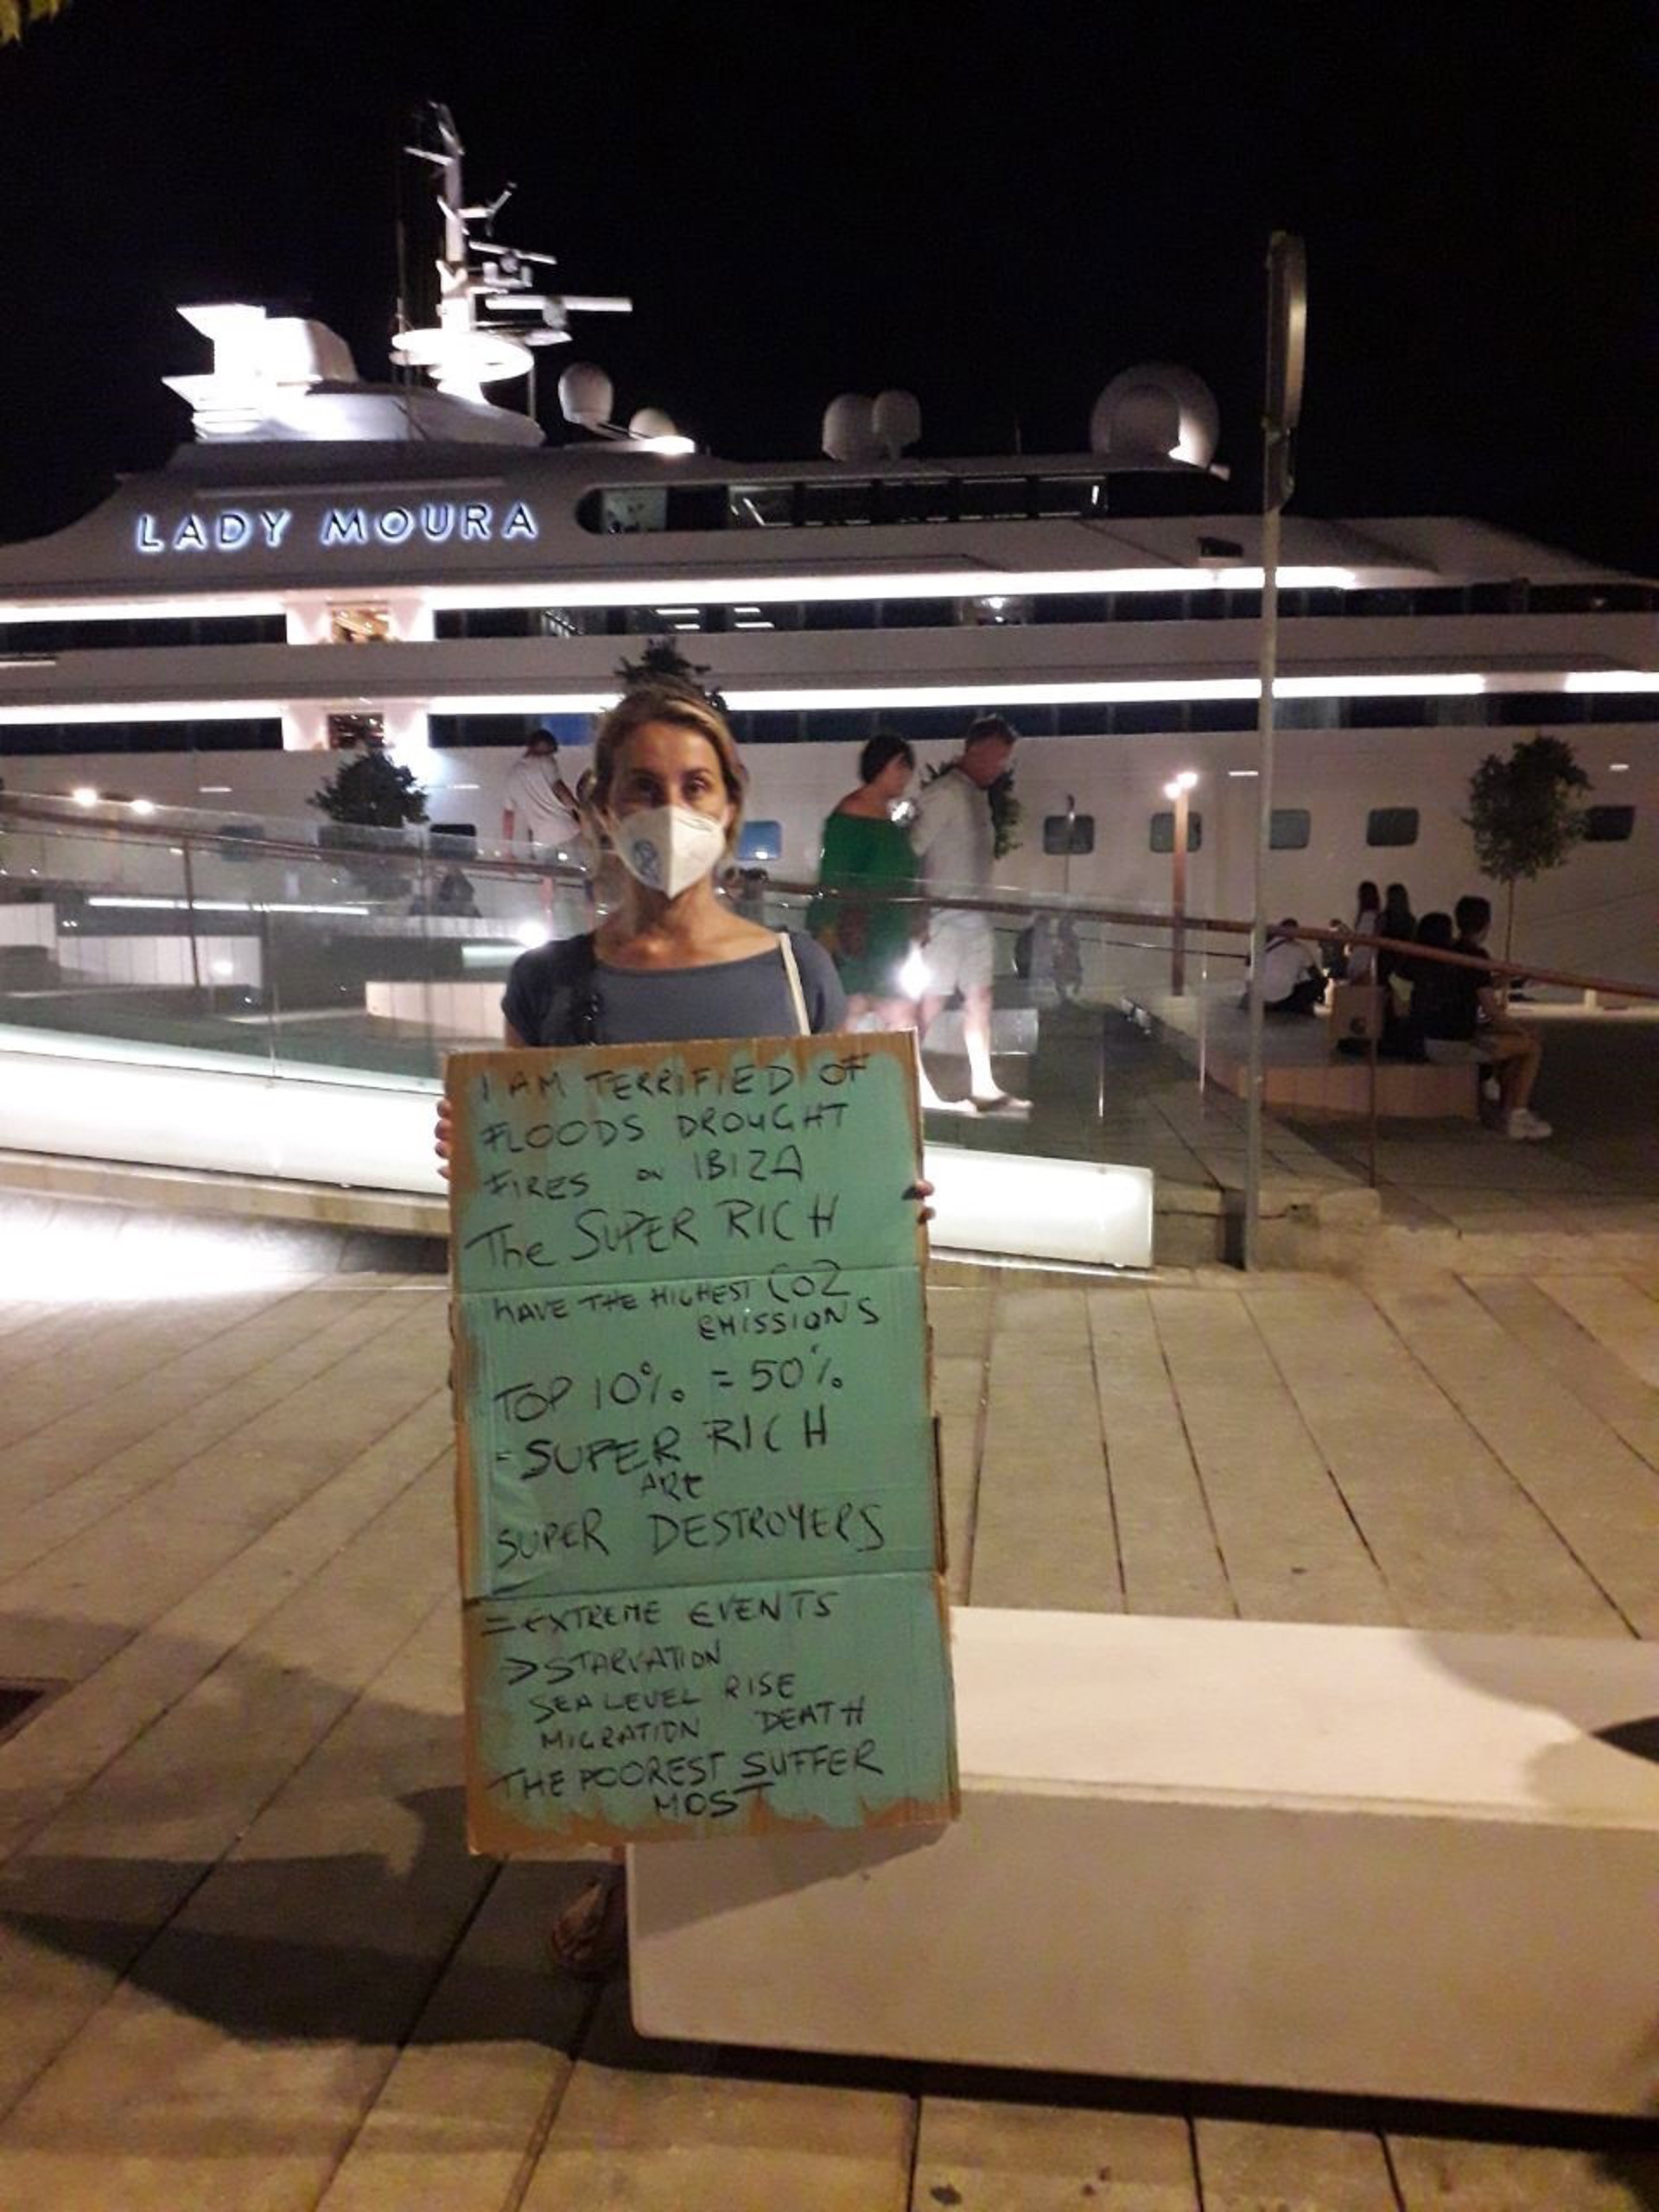 LADY MOURA
I AM TERRIFIED OF
FLOODS DROUGHT
FIRES ON IBIZA
The SUPER RICH
HAVE THE HIGHEST CO2
EMISSIONS
TOP 10% = 50%
- SUPER RICH
ARE
SUPER DESTROYERS
= EXTREME EVENTS
> STARVATION
SEA LEVEL RISE
MIGRATION DEATH
THE POOREST SUFFER
MOST